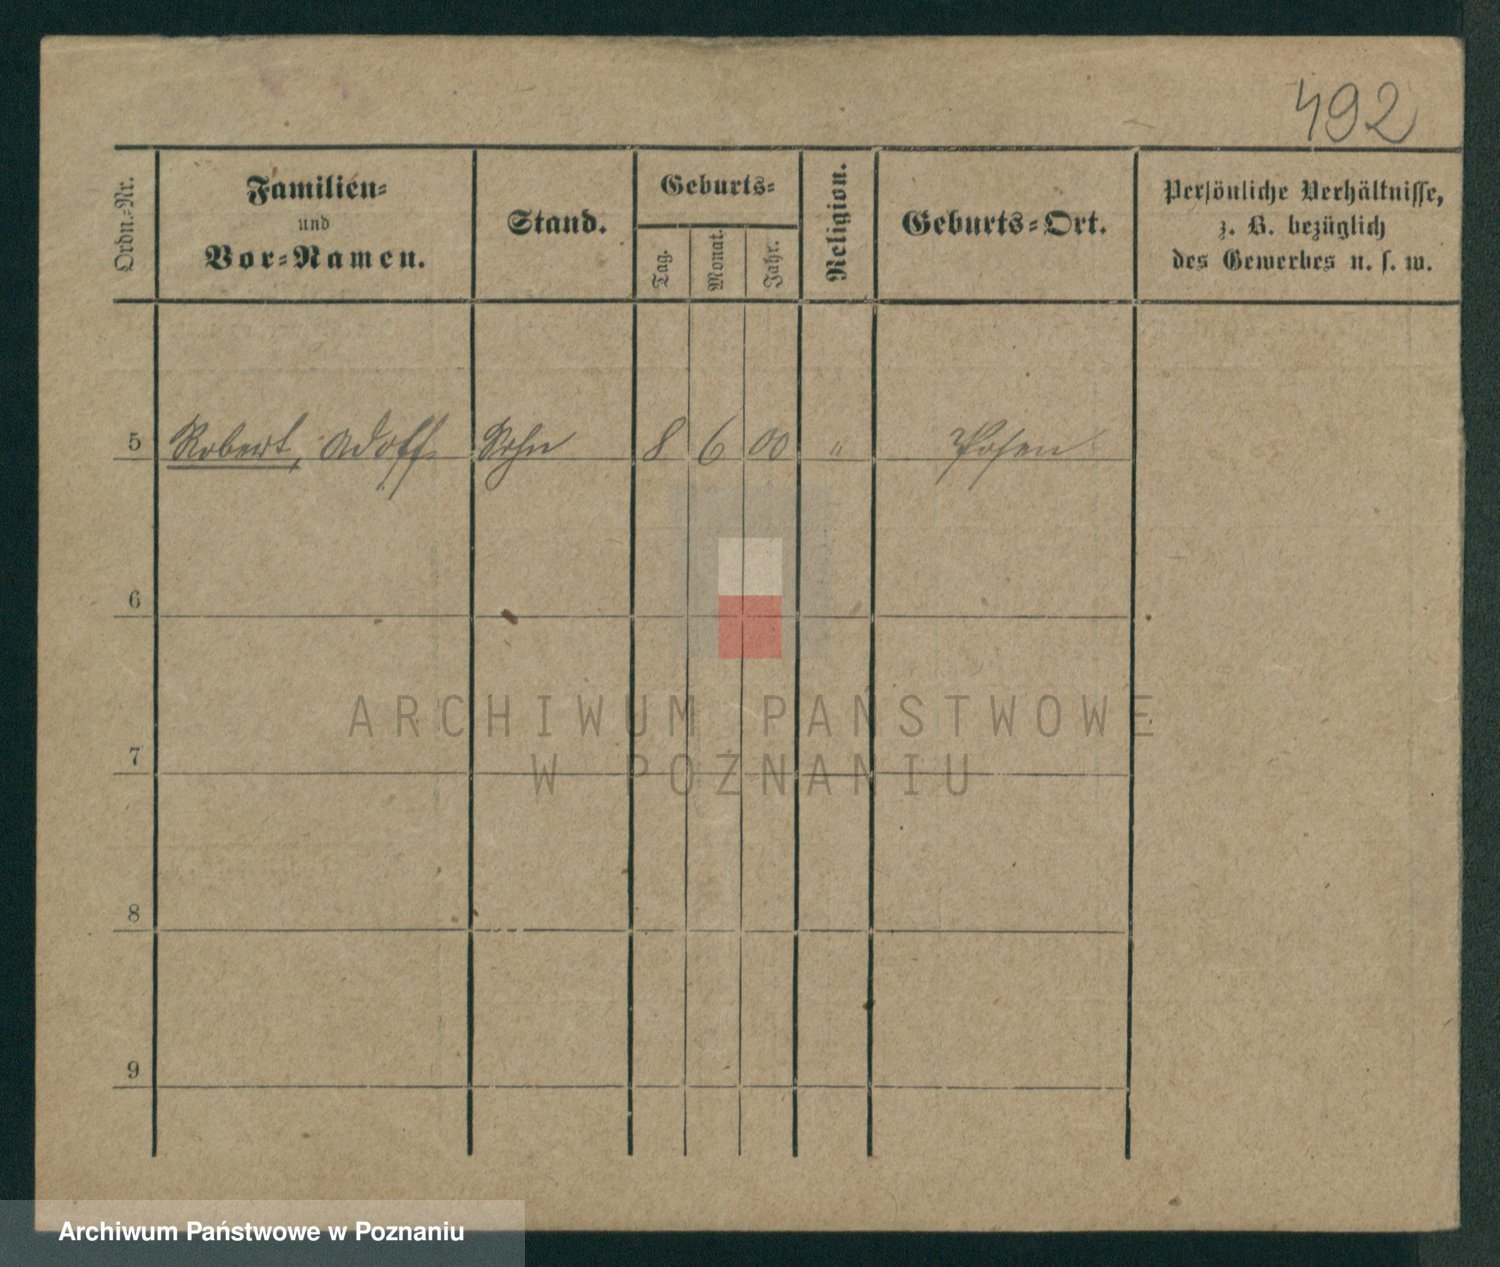 492
Ordn.-Nr.
Familien-
und
Vor-Namen.
Stand.
Geburts-
Tag.
Monat.
Jahr.
Religion.
Geburts-Ort.
Persönliche Verhältnisse,
z. B. bezüglich
des Gewerbes u. s. w.
5 Robert, Adolf Sohn 8 6 00 " Posen
6
7
8
9
ARCHIWUM PAŃSTWOWE
W POZNANIU
Archiwum Państwowe w Poznaniu